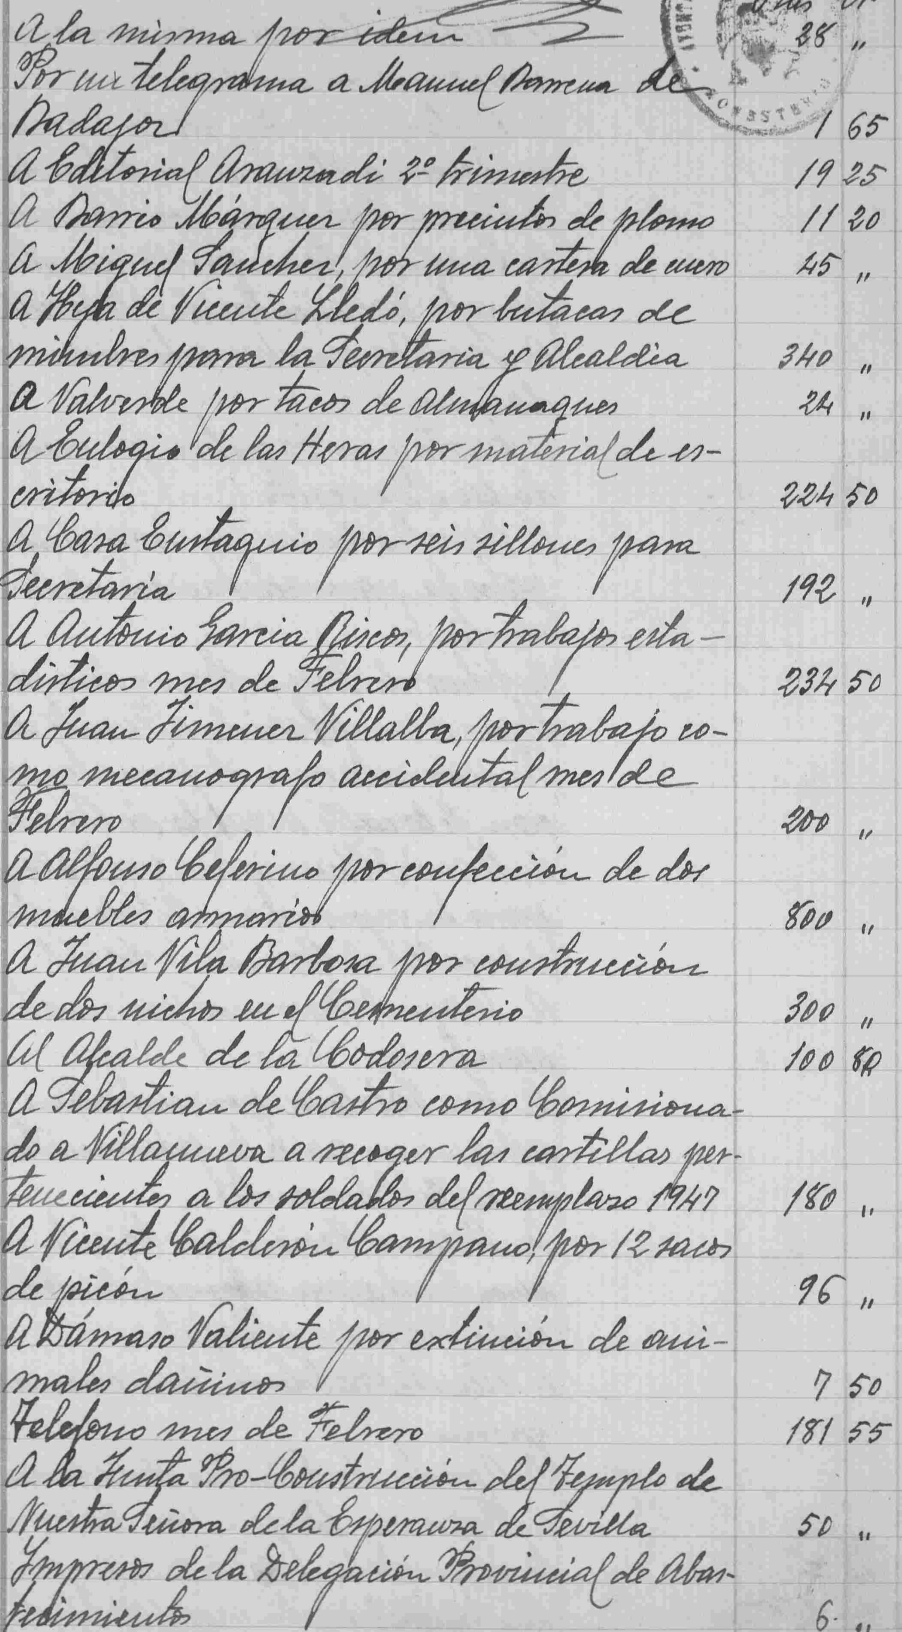 A la misma por idem 28 „
Por un telegrama a Manuel Barrena de
Badajoz 1 65
A Editorial Aranzadi 2º trimestre 19 25
A Barrio Márquez por precintos de plomo 11 20
A Miguel Sanchez, por una cartera de cuero 45 „
A Hija de Vicente Lledó, por butacas de
mimbres para la Secretaria y Alcaldia 340 „
A Valverde por tacos de almanaques 24 „
A Eulogio de las Heras por material de es-
critorio 224 50
A Casa Eustaquio por seis sillones para
Secretaría 192 „
A Antonio Garcia Riscos, por trabajos esta-
disticos mes de Febrero 234 50
A Juan Jimenez Villalba, por trabajo co-
mo mecanografo accidental mes de
Febrero 200 „
A Alfonso Ceferino por confección de dos
muebles armarios 800 „
A Juan Vila Barbosa por construcción
de dos nichos en el Cementerio 300 „
Al Alcalde de la Codosera 100 80
A Sebastian de Castro como Comisiona-
do a Villanueva a recoger las cartillas per-
tenecientes a los soldados del reemplazo 1947 180 „
A Vicente Calderón Campano, por 12 sacos
de picón 96 „
A Dámaso Valiente por extinción de ani-
males dañinos 7 50
Telefono mes de Febrero 181 55
A la Junta Pro-Construcción del Templo de
Nuestra Señora de la Esperanza de Sevilla 50 „
Impresos de la Delegación Provincial de Abas-
tecimientos 6 „